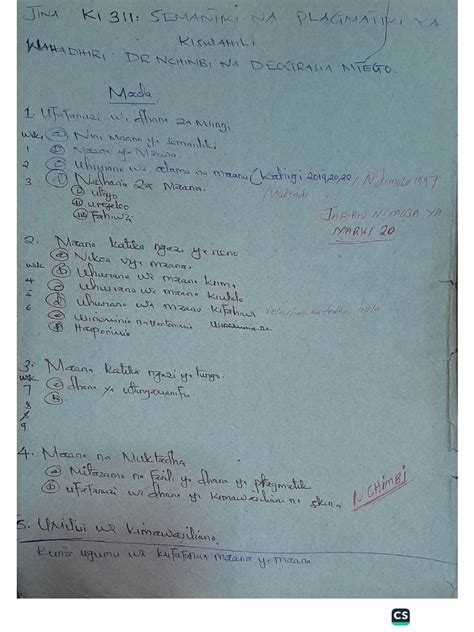 JINA KI 311: SEMANTIKI NA PLAGMATIKI YA
KISWAHILI
WAHADHIRI: DR NCHIMBI NA DEOGRASIA MTEGO.
Mada
1. Ufafanuzi wa dhana za Msingi
wk (a) Nini Maana ya semantiki
1 (b) Maana ya Maana.
2 (c) Uhusiano wa alama na maana (Kahigi 2019,2020/ Ndimele 1997
3 (d) Nadharia za Maana.
(i) Urejeleo
(iii) Fahiwa
JARIBIO NI MOJA YA
MARKS 20
2. Maana katika ngazi ya neno
(a) Nikoa vya maana.
wk (b) Uhusiano wa maana kum
4 (c) Uhusiano wa maana
5 (d) Uhusiano wa maana kifahiwa
6 (e)
(f) Haponimia
3. Maana katika ngazi ya tungo.
wk (a) dhana ya Utungamanifu.
7 (b)
8
9
4. Maana na Muktadha
(a) Mitazamo na Fasili ya dhana ya plagmatik
(b) ufafanuzi wa dhana ya kimawasiliano na
NCHIMBI
5. Umilisi wa Kimawasiliano.
Kuna ugumu wa kufafanua maana ya maana
CS